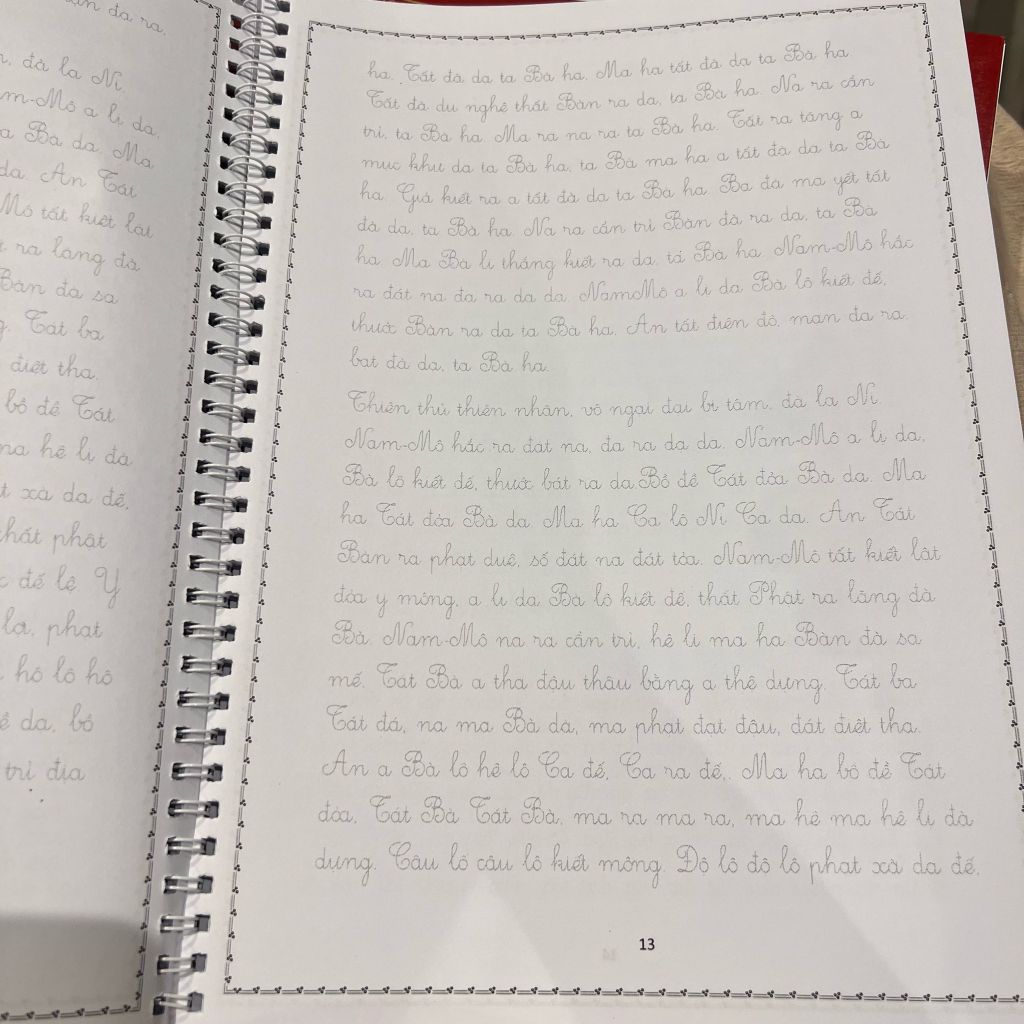 ăn đa ra,
đà la Ni.
m-Mô a lị da,
a Bà da. Ma
da. Án Tát
Mô tất kiết lật
ra lăng đà
Bàn đà sa
Tát ba
điệt tha.
bồ đề Tát
ma hê lị đà
xà da đế,
thất phật
đế lê Y
la, phạt
hô lô hô
da, bồ
trì địa
ha. Tất đà da ta Bà ha. Ma ha tất đà da ta Bà ha.
Tất đà du nghệ thất Bàn ra da, ta Bà ha. Na ra cẩn
trì, ta Bà ha. Ma ra na ra ta Bà ha. Tất ra tăng a
mục khư da ta Bà ha, ta Bà ma ha a tất đà da ta Bà
ha. Giả kiết ra a tất đà da ta Bà ha. Ba đà ma yết tất
đà da, ta Bà ha. Na ra cẩn trì Bàn đà ra da, ta Bà
ha. Ma Bà lị thắng kiết ra da, ta Bà ha. Nam-Mô hắc
ra đát na đa ra dạ da. NamMô a lị da Bà lô kiết đế,
thước Bàn ra da ta Bà ha. Án tất điện đô, mạn đa ra,
bạt đà da, ta Bà ha.
Thiên thủ thiên nhãn, vô ngại đại bi tâm, đà la Ni.
Nam-Mô hắc ra đát na, đa ra dạ da. Nam-Mô a lị da,
Bà lô kiết đế, thước bát ra da, Bồ đề Tát đỏa Bà da. Ma
ha Tát đỏa Bà da. Ma ha Ca lô Ni Ca da. Án Tát
Bàn ra phạt duệ, số đát na đát tỏa. Nam-Mô tất kiết lật
đỏa y mông, a lị da Bà lô kiết đế, thất Phật ra lăng đà
Bà. Nam-Mô na ra cẩn trì, hê lị ma ha Bàn đà sa
mế. Tát Bà a tha đậu thâu bằng a thệ dựng. Tát ba
Tát đá, na ma Bà dà, ma phạt đạt đậu, đát điệt tha.
Án a Bà lô hê lô Ca đế, Ca ra đế,. Ma ha bồ đề Tát
đỏa, Tát Bà Tát Bà, ma ra ma ra, ma hê ma hê lị đà
dựng. Câu lô câu lô kiết mông. Độ lô đô lô phạt xà da đế,
13